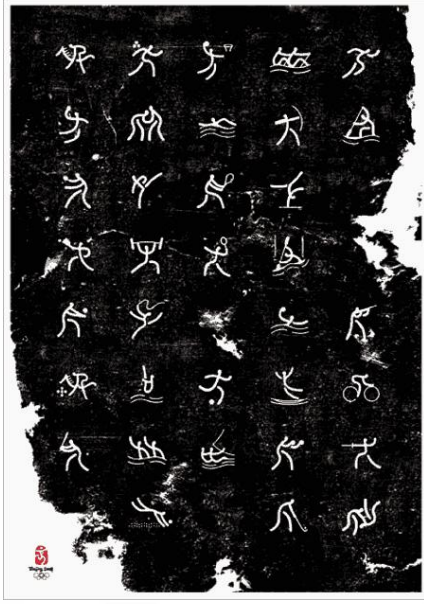 Beijing 2008